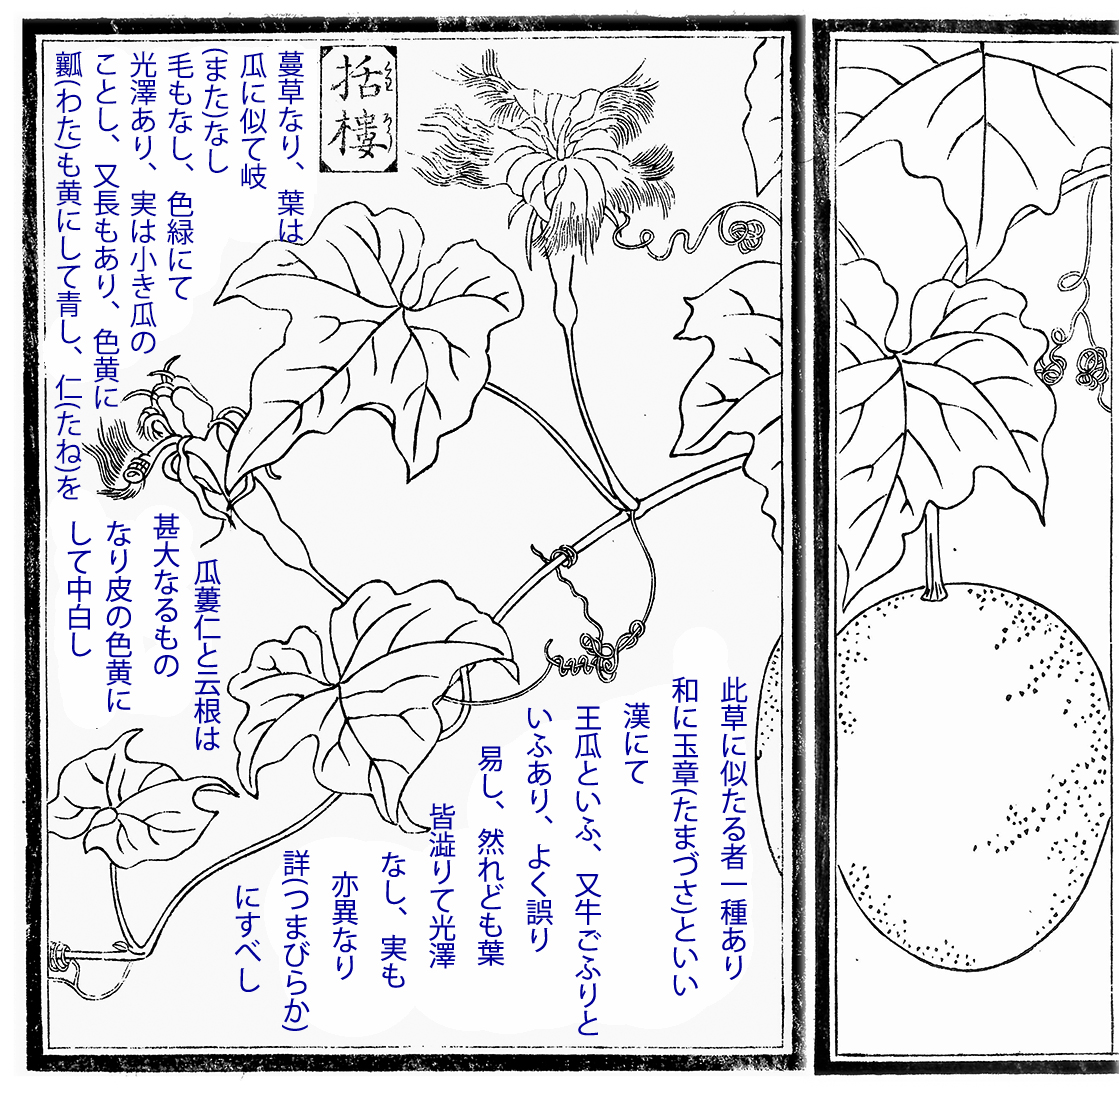 括樓
蔓草なり、葉は
瓜に似て岐
(また)なし
毛もなし、色緑にて
光澤あり、実は小き瓜の
ことし、又長もあり、色黄に
瓤(わた)も黄にして青し、仁(たね)を
瓜蔞仁と云根は
甚大なるもの
なり皮の色黄に
して中白し
此草に似たる者一種あり
和に玉章(たまづさ)といい
漢にて
王瓜といふ、又牛ごふりと
いふあり、よく誤り
易し、然れども葉
皆澁りて光澤
なし、実も
亦異なり
詳(つまびらか)
にすべし